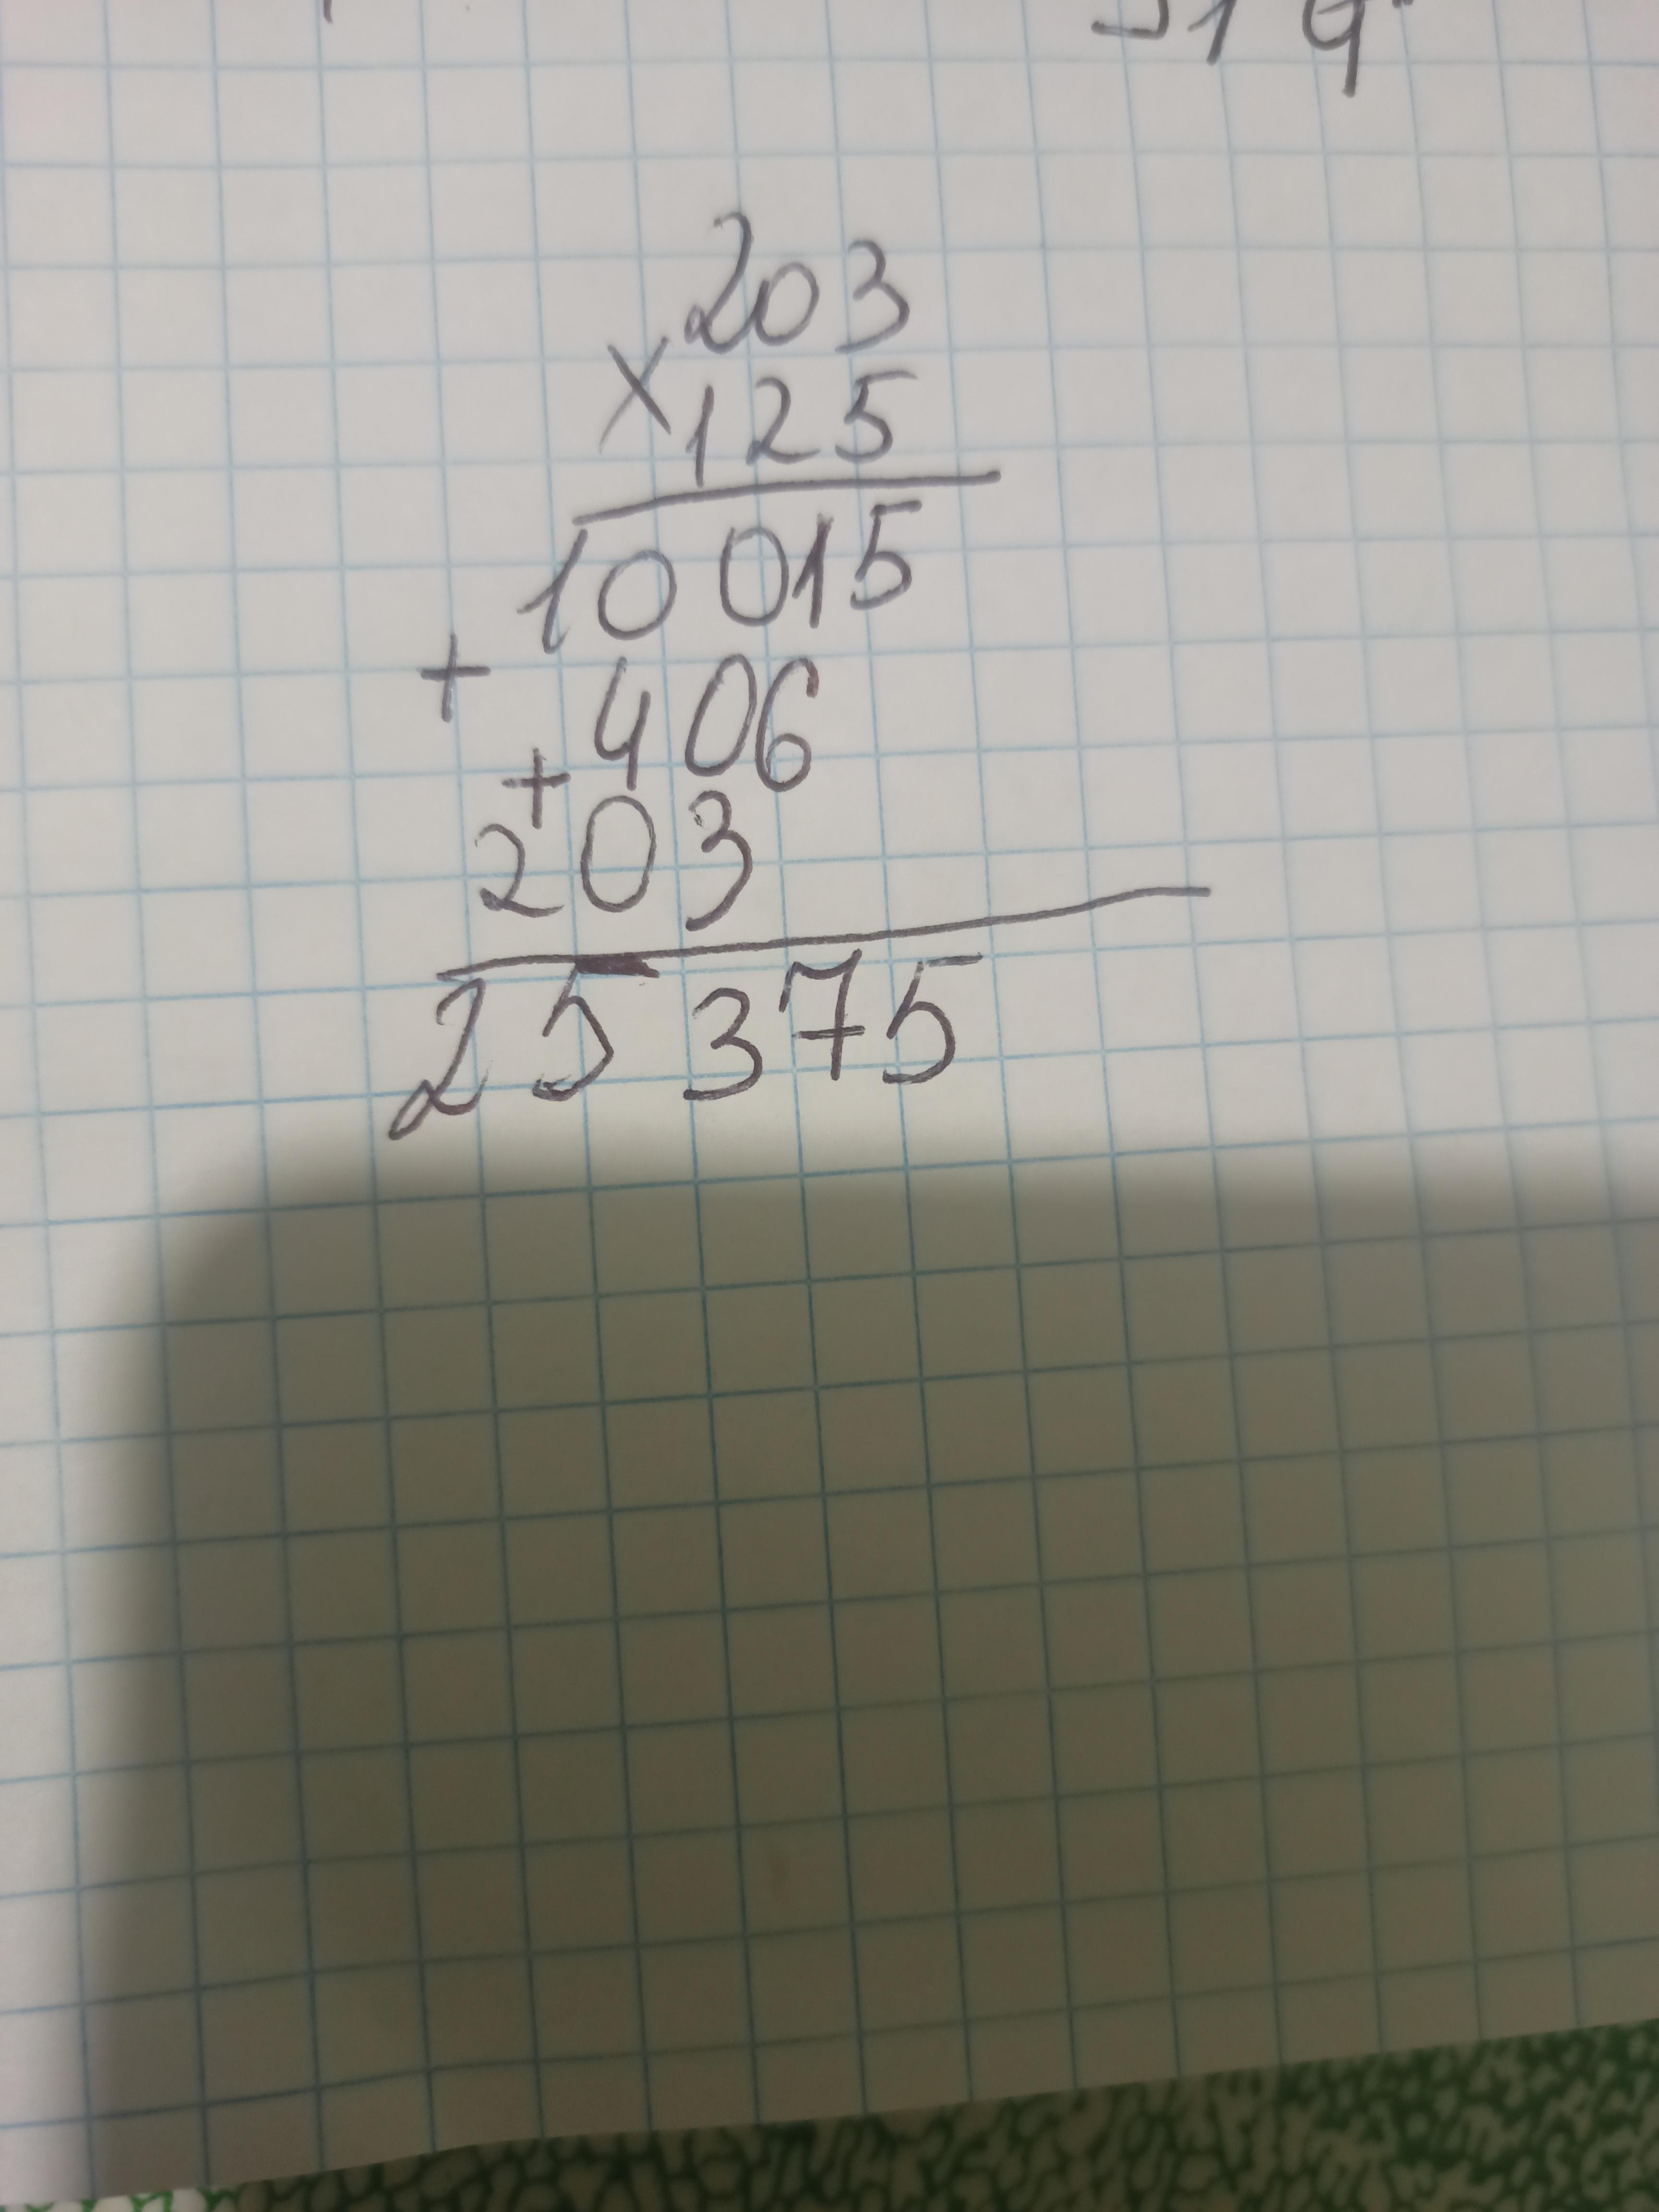 203
× 125
10015
+ 406
+ 203
25375